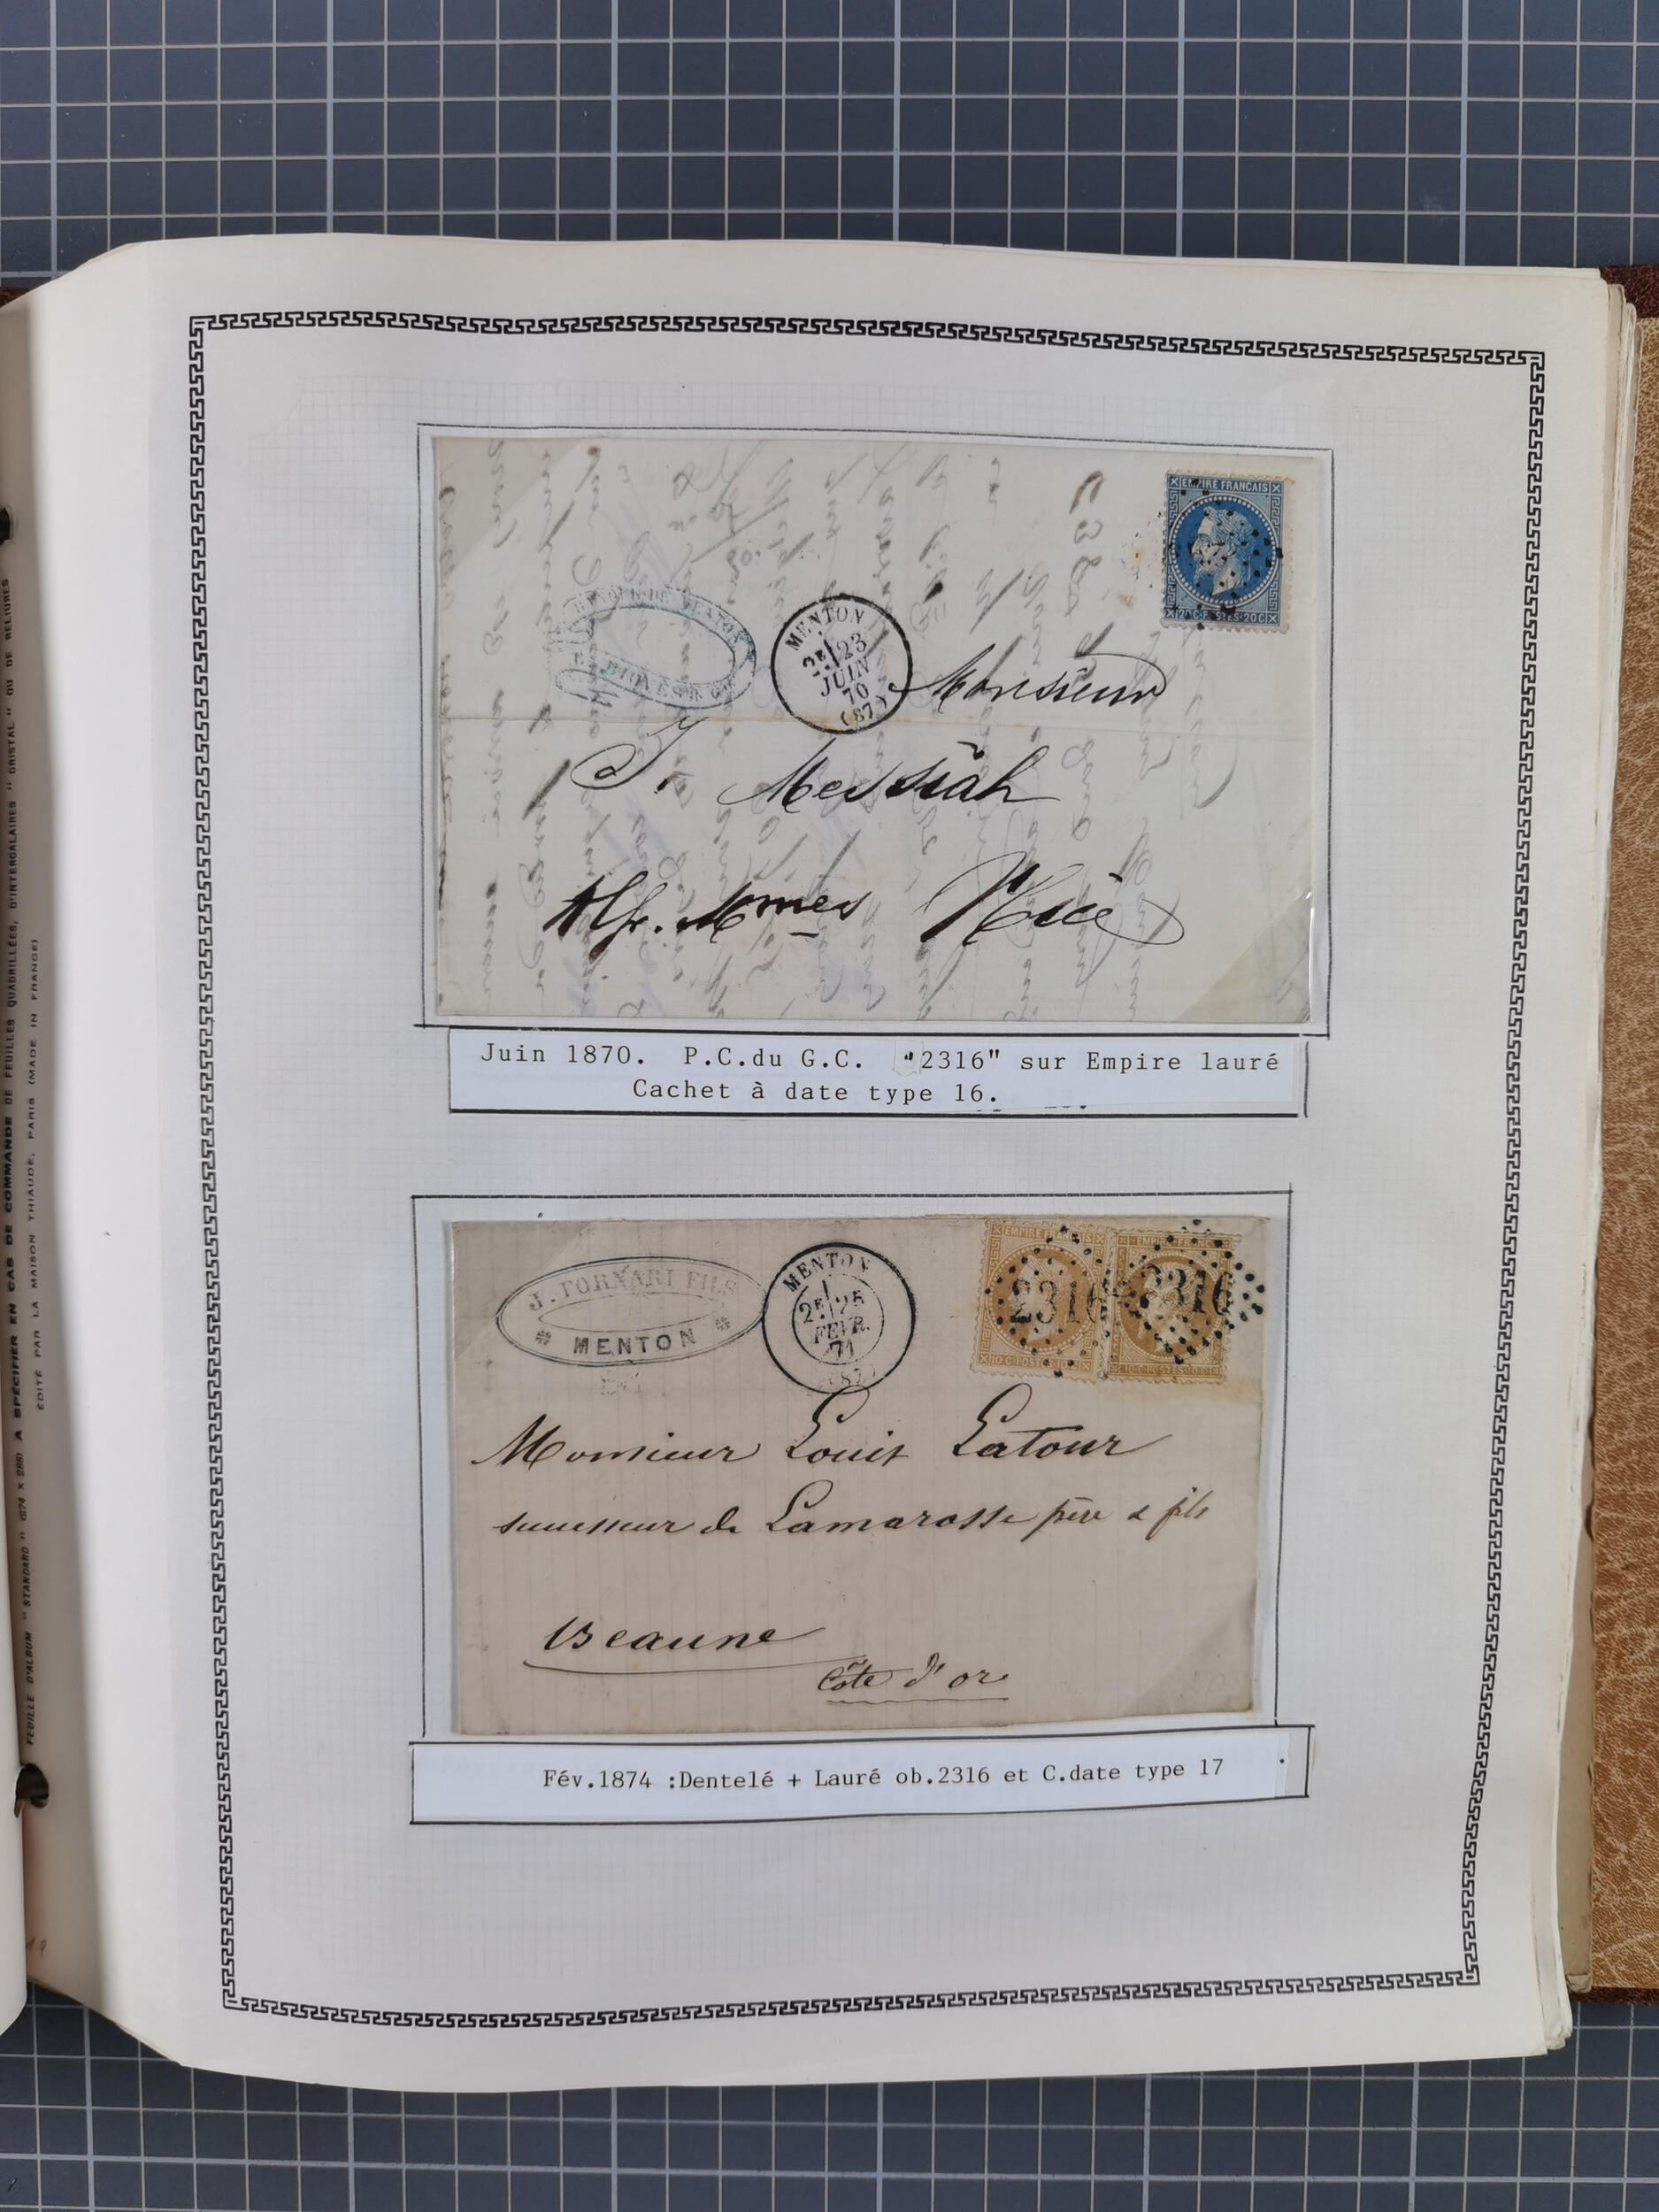 EMPIRE FRANCAIS
MENTON
2E 23
JUIN
70
(87)
Monsieur
J. Messiah
Alf. Mmes Nice
Juin 1870. P.C.du G.C. "2316" sur Empire lauré
Cachet à date type 16.
J. FORNARI FILS
MENTON
MENTON
2E 25
FEVR.
71
(87)
EMPIRE FRANCAIS
2316
10 C POSTES 10 C
EMPIRE FRANC
2316
Monsieur Louis Latour
successeur de Lamarosse père & fils
Beaune
Côte d'or
Fév.1874 :Dentelé + Lauré ob.2316 et C.date type 17
FEUILLE D'ALBUM "STANDARD" (274 X 286) A SPÉCIFIER EN CAS DE COMMANDE DE FEUILLES QUADRILLÉES, D'INTERCALAIRES "CRISTAL" OU DE RELIURES
ÉDITÉ PAR LA MAISON THIAUDE, PARIS (MADE IN FRANCE)